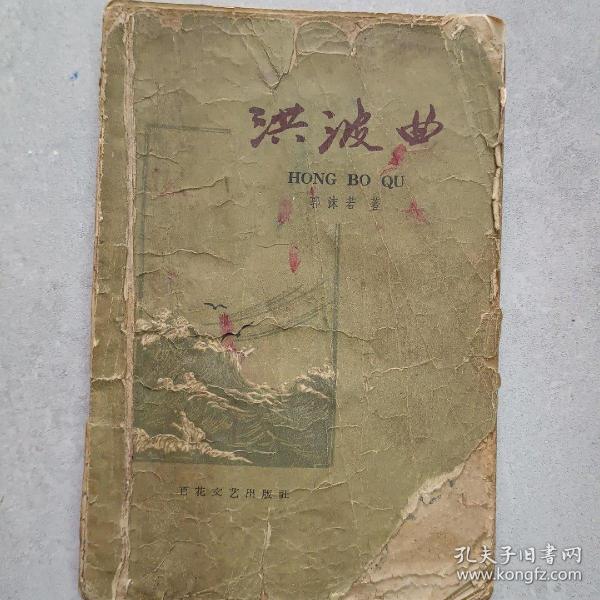 洪波曲
HONG BO QU
郭沫若 著
百花文艺出版社
孔夫子旧书网
www.kongfz.com